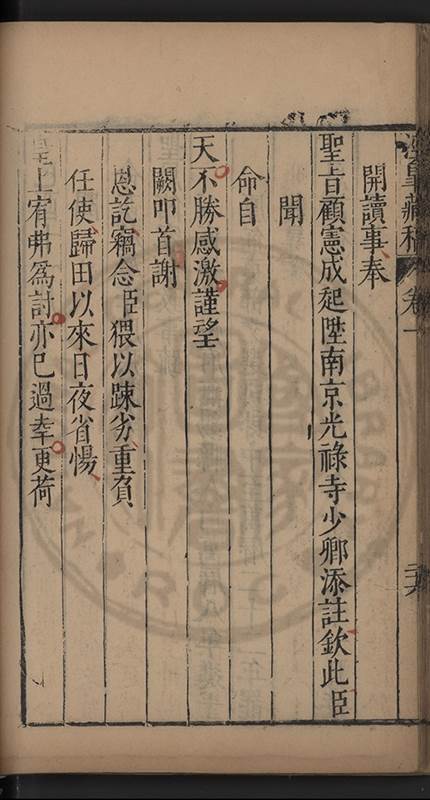 涇皋藏稿 卷一
開讀事奉
聖旨顧憲成起陞南京光祿寺少卿添註欽此臣
聞
命自
天不勝感激謹望
闕叩首謝
恩訖竊念臣猥以踈劣重負
任使歸田以來日夜省惕
皇上宥弗爲討亦已過幸更荷